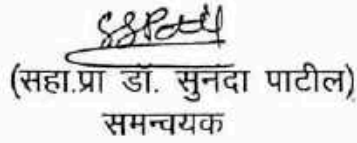 (सहा.प्रा डॉ. सुनंदा पाटील)
समन्वयक